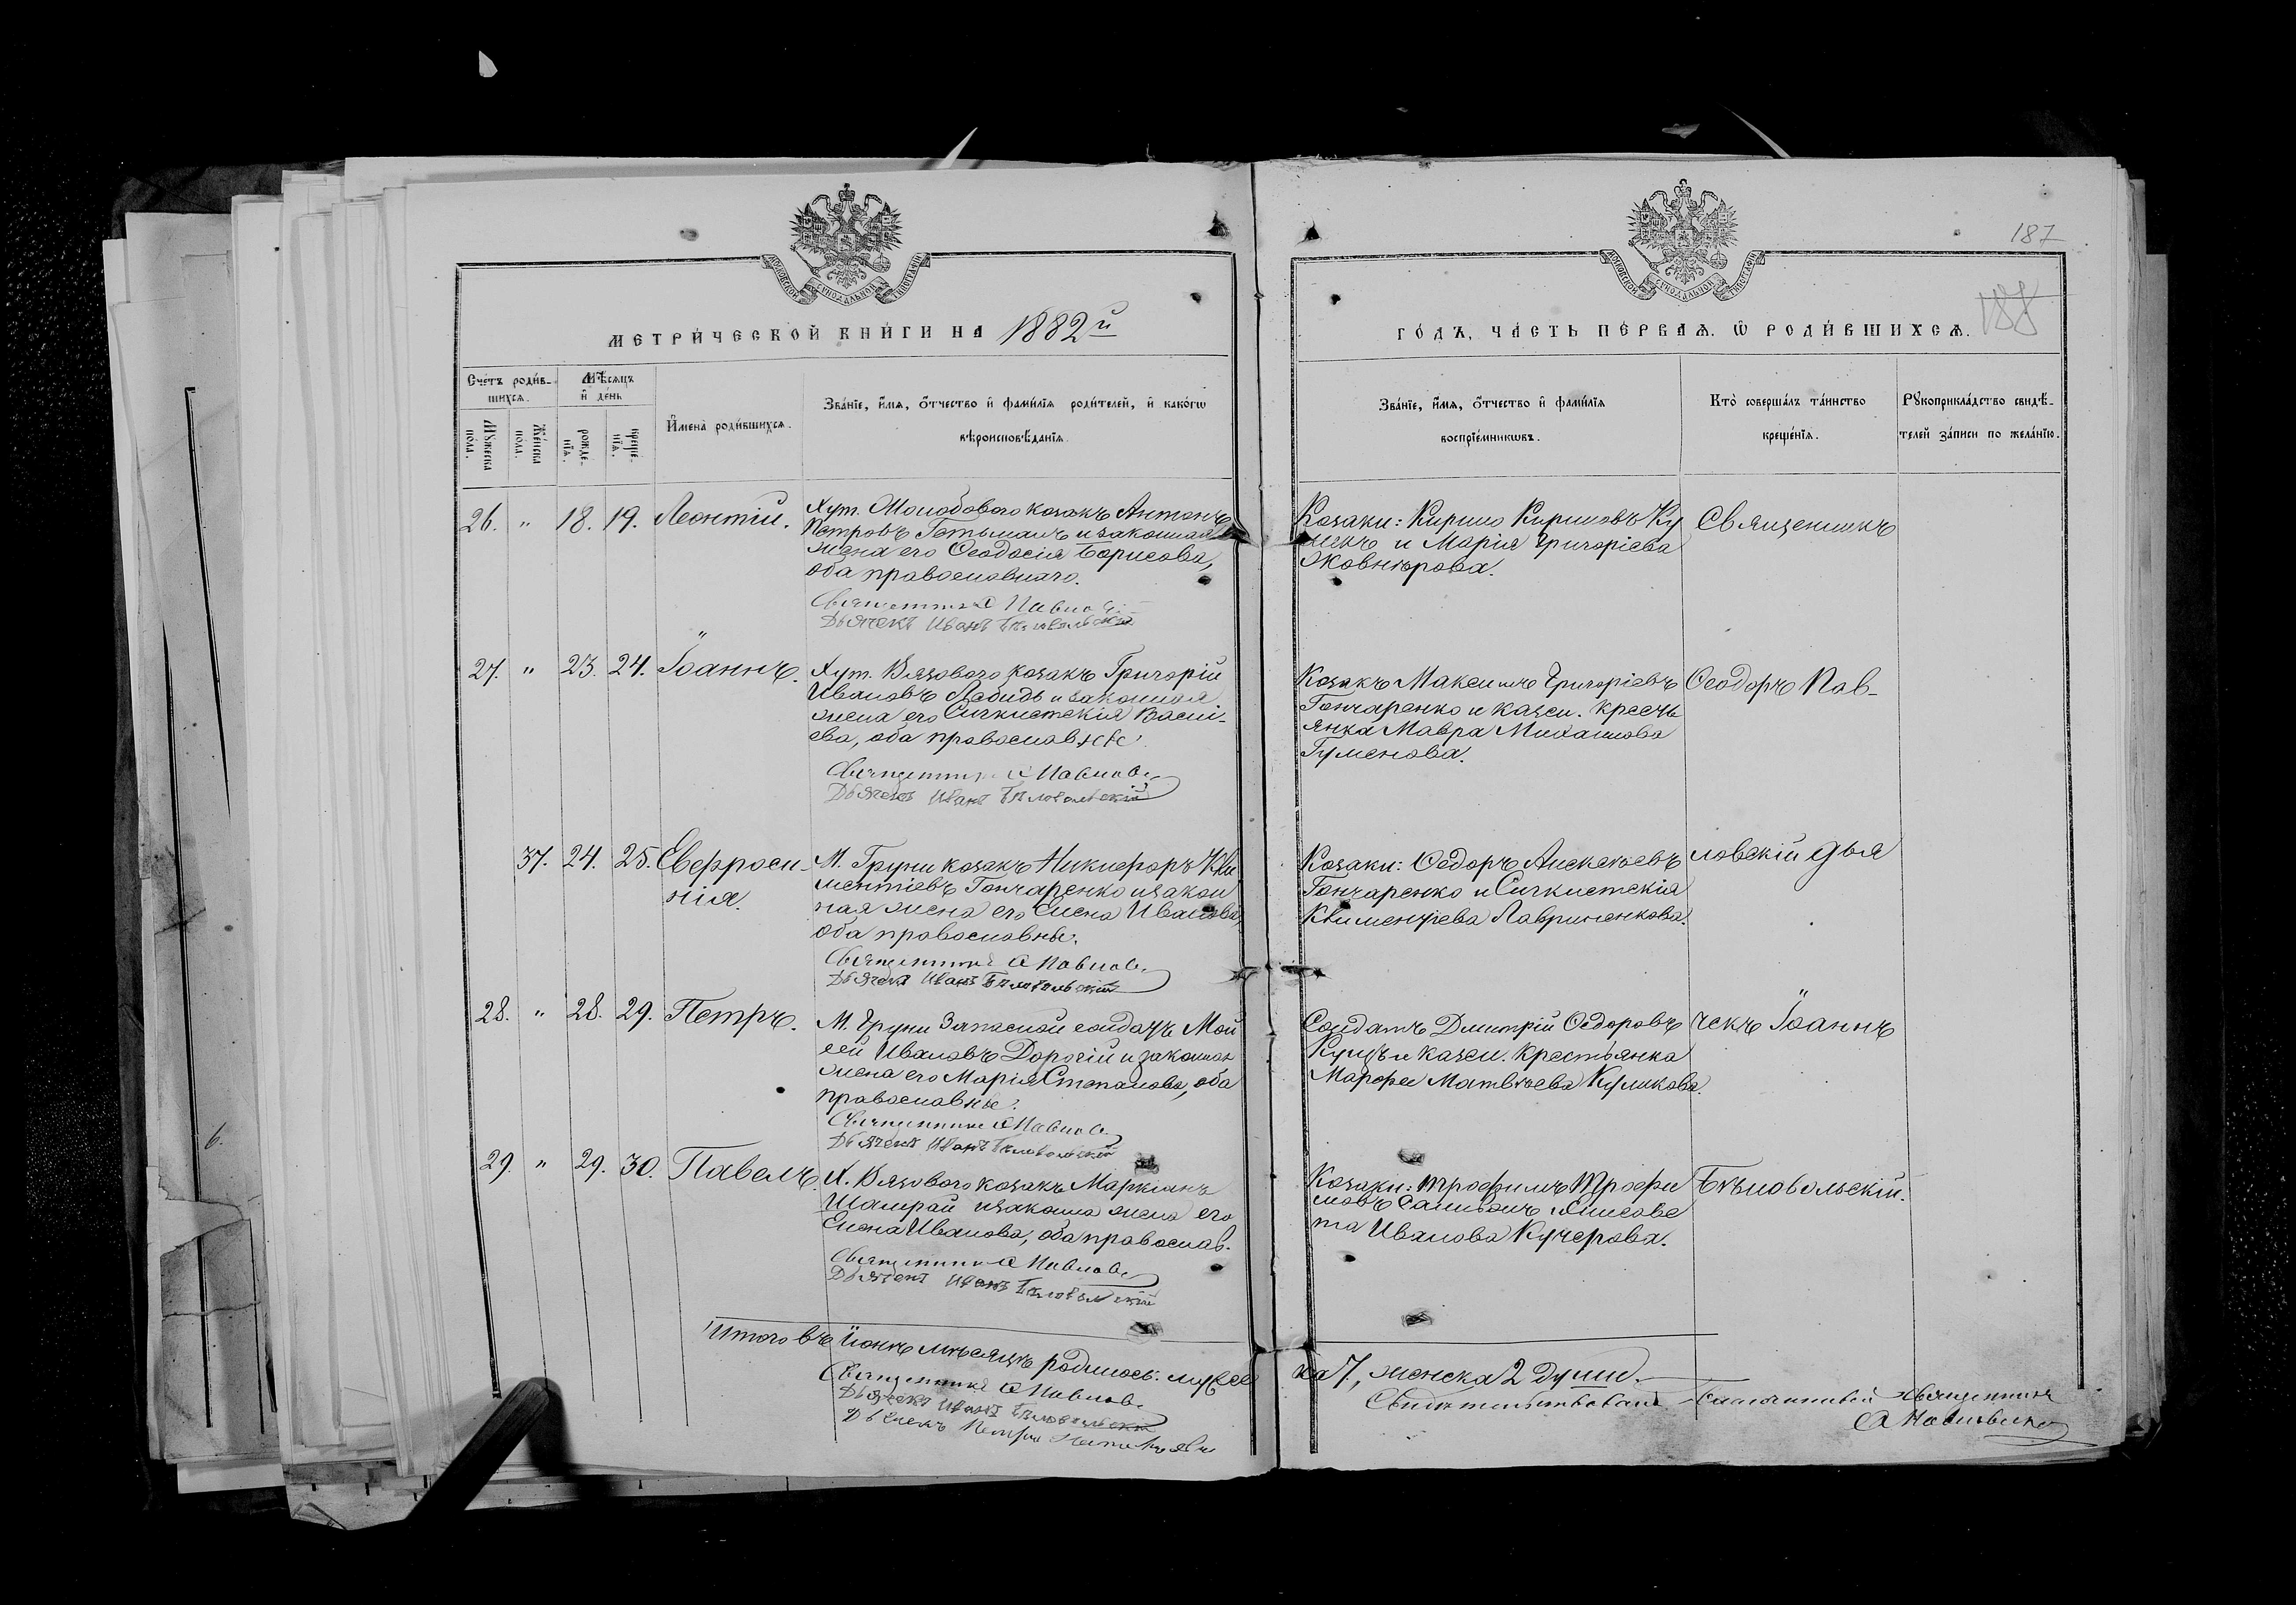 187
188
МЕТРИ́ЧЕСКОЙ КНИ́ГИ НА 1882й
ГО́ДЪ, ЧА́СТЬ ПЕ́РВАѦ. Ѿ РОДИ́ВШИХСѦ.
Сче́тъ роди́в-
шихсѧ.
Мꙋжеска
пола.
Же́нска
пола.
Мѣ́сѧцъ
и҆ де́нь
рожде-
нїѧ.
креще-
нїѧ.
И҆мена̀ роди́вшихсѧ.
Зва́нїе, и҆́мѧ, ѻ҆́тчество и҆ фами́лїѧ роди́телей, и҆ како́гѡ
вѣроисповѣ́данїѧ.
Зва́нїе, и҆́мѧ, ѻ҆́тчество и҆ фами́лїѧ
воспрїе́мникѡвъ.
Кто̀ соверша́лъ та́инство
креще́нїѧ.
Рꙋкоприкла́дство свидѣ́-
телей за́писи по жела́нїю.
26. " 18. 19. Леонтій.
Хут. козакъ Антонъ
Петровъ Гетьманъ и законная
жена его Ѳеодосія Борисова,
оба православнаго.
Священникъ Ѳ Павлов
Дьячекъ Иванъ Бѣловольскій
Козаки: Кирило Кириловъ Ку
и Марія Григоріева
Жовнѣрова.
Священникъ
27. " 23. 24. Іоаннъ.
Хут. Вязового козакъ Григорій
Ивановъ Лебидь и законная
жена его Сигклитекія Васи-
ева, оба православные.
Священникъ Ѳ Павлов
Дьячекъ Иванъ Бѣловольскій
Козакъ Максимъ Григоріевъ
Гончаренко и казен. крестъ
янка Мавра Михаилова
Гуменова.
Ѳеодоръ Пав-
37. 24. 25. Евфроси-
нія.
М. Груни козакъ Никифоръ Кли
ментіевъ Гончаренко и закон
ная жена его Елена Иванова,
оба православные.
Священникъ Ѳ Павлов
Дьячекъ Иванъ Бѣловольскій
Козаки: Ѳедоръ Алексѣевъ
Гончаренко и Сигклитекія
Климентіева Лавриненкова.
ловскій дья
28. " 28. 29. Петръ.
М. Груни Запасной солдатъ Мой
сей Ивановъ Дорогій и законная
жена его Марія Степанова, оба
православные.
Священникъ Ѳ Павлов
Дьячекъ Иванъ Бѣловольскій
Солдатъ Дмитрій Ѳедоровъ
Куцъ и казен. крестьянка
Марфа Матвѣева Куликова.
чекъ Іоаннъ
29. " 29. 30. Павелъ.
Х. Вязового козакъ Маркіанъ
Шамрай и закона жена его
Елена Иванова, оба православ.
Священникъ Ѳ Павлов
Дьячекъ Иванъ Бѣловольскій
Козаки: Трофимъ Трофи
мовъ и Елисаве
та Иванова Кучерова.
Бѣловольскій.
Итого въ Іюнѣ мѣсяцѣ родилось: мужес
ка 7, женска 2 души.
Священникъ Ѳ Павлов
Дьячекъ Иванъ Бѣловольскій
Дьячекъ Петръ
Свидѣтельствовалъ Благочинный Священникъ